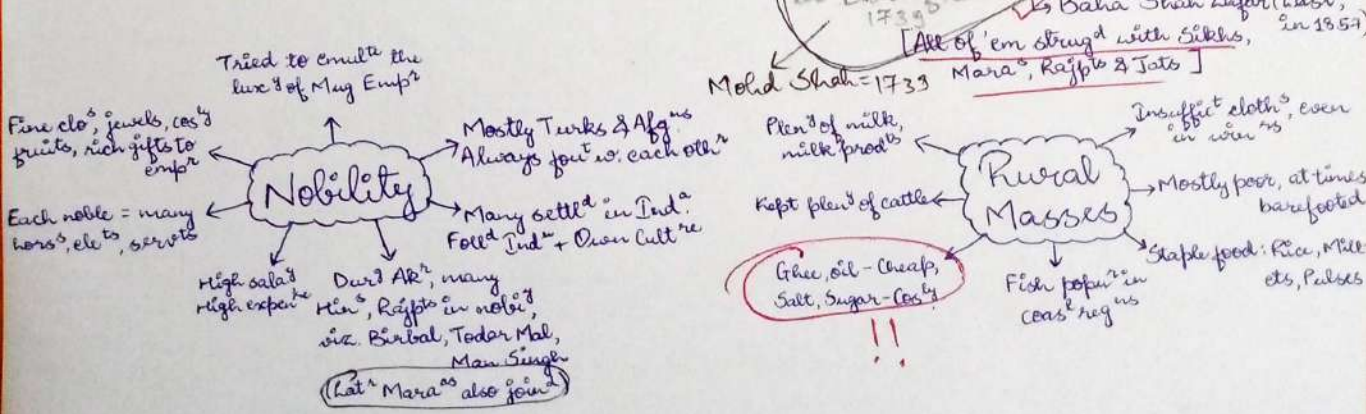 1739
Baha Shah Zafar (Last,
in 1857)
[All of 'em strugᵈ with Sikhs,
Maraˢ, Rajpᵗˢ & Jats]
Mohd Shah = 1739
Tried to emulᵗᵉ the
luxʸ of Mug Empʳ
Fine cloˢ, jewels, cosʸ
fruits, rich gifts to
empʳ
Mostly Turks & Afgⁿˢ
Always fouᵗ w. each othʳ
Nobility
Each noble = many
horsˢ, eleᵗˢ, servᵗˢ
Many settlᵈ in Indᵃ.
Follᵈ Indⁿ + Own Cultʳᵉ
High salaʸ
High expenʳᵉ
Durᵍ Akʳ, many
Hinˢ, Rajpᵗˢ in nobiʸ,
viz. Birbal, Todar Mal,
Man Singh
(Latʳ Maraᵃˢ also joinᵈ)
Plenʸ of milk,
milk prodᵗˢ
Insufficᵗ clothˢ, even
in winʳˢ
Rural
Masses
Kept plenʸ of cattle
Mostly poor, at times
barefooted
Ghee, oil - Cheap,
Salt, Sugar - Cosˡʸ
!!
Fish popuʳ in
coasˡ regⁿˢ
Staple food: Rice, Mill-
ets, Pulses